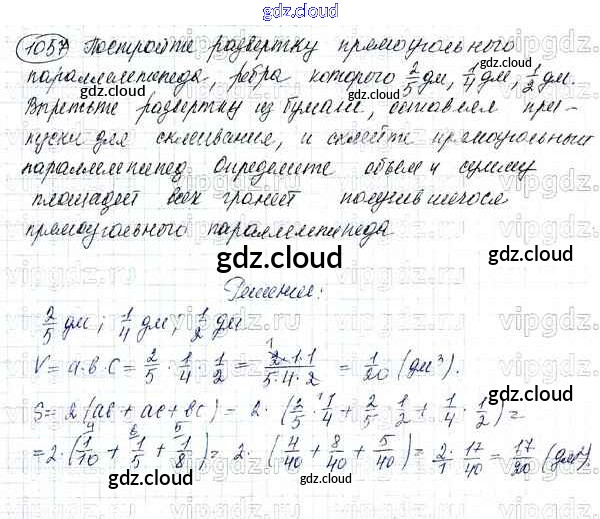 gdz.cloud
1057 Постройте развертку прямоугольного
параллелепипеда, ребра которого 2/5 дм, 1/4 дм, 1/2 дм.
Вырежьте развертку из бумаги, оставляя при-
пуски для склеивания, и склейте прямоугольный
параллелепипед. Определите объем и сумму
площадей всех граней получившегося
прямоугольного параллелепипеда.
gdz.cloud
Решение:
2/5 дм; 1/4 дм; 1/2 дм
V = a·b·c = 2/5 · 1/4 · 1/2 = 2·1·1/5·4·2 = 1/20 (дм³).
S = 2(ab + ac + bc) = 2·(2/5 · 1/4 + 2/5 · 1/2 + 1/4 · 1/2) =
= 2·(1/10 + 1/5 + 1/8) = 2·(4/40 + 8/40 + 5/40) = 2/1 · 17/40 = 17/20 (дм²).
gdz.cloud